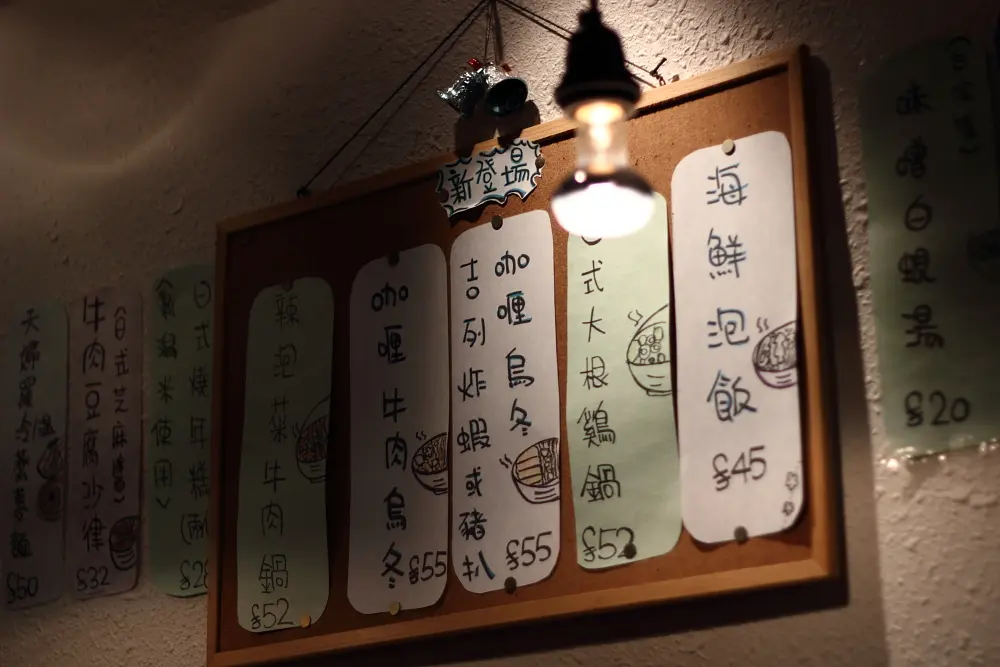 新登場
味噌白蜆湯
$20
海鮮泡飯
$45
式大根鷄鍋
$52
咖喱烏冬
吉列炸蝦或豬扒
$55
咖喱牛肉烏冬
$55
辣泡菜牛肉鍋
$52
日式燒年糕(兩
潟米使用)
(日式芝麻醬)
牛肉豆腐沙律
$32
天婦羅冷
$50